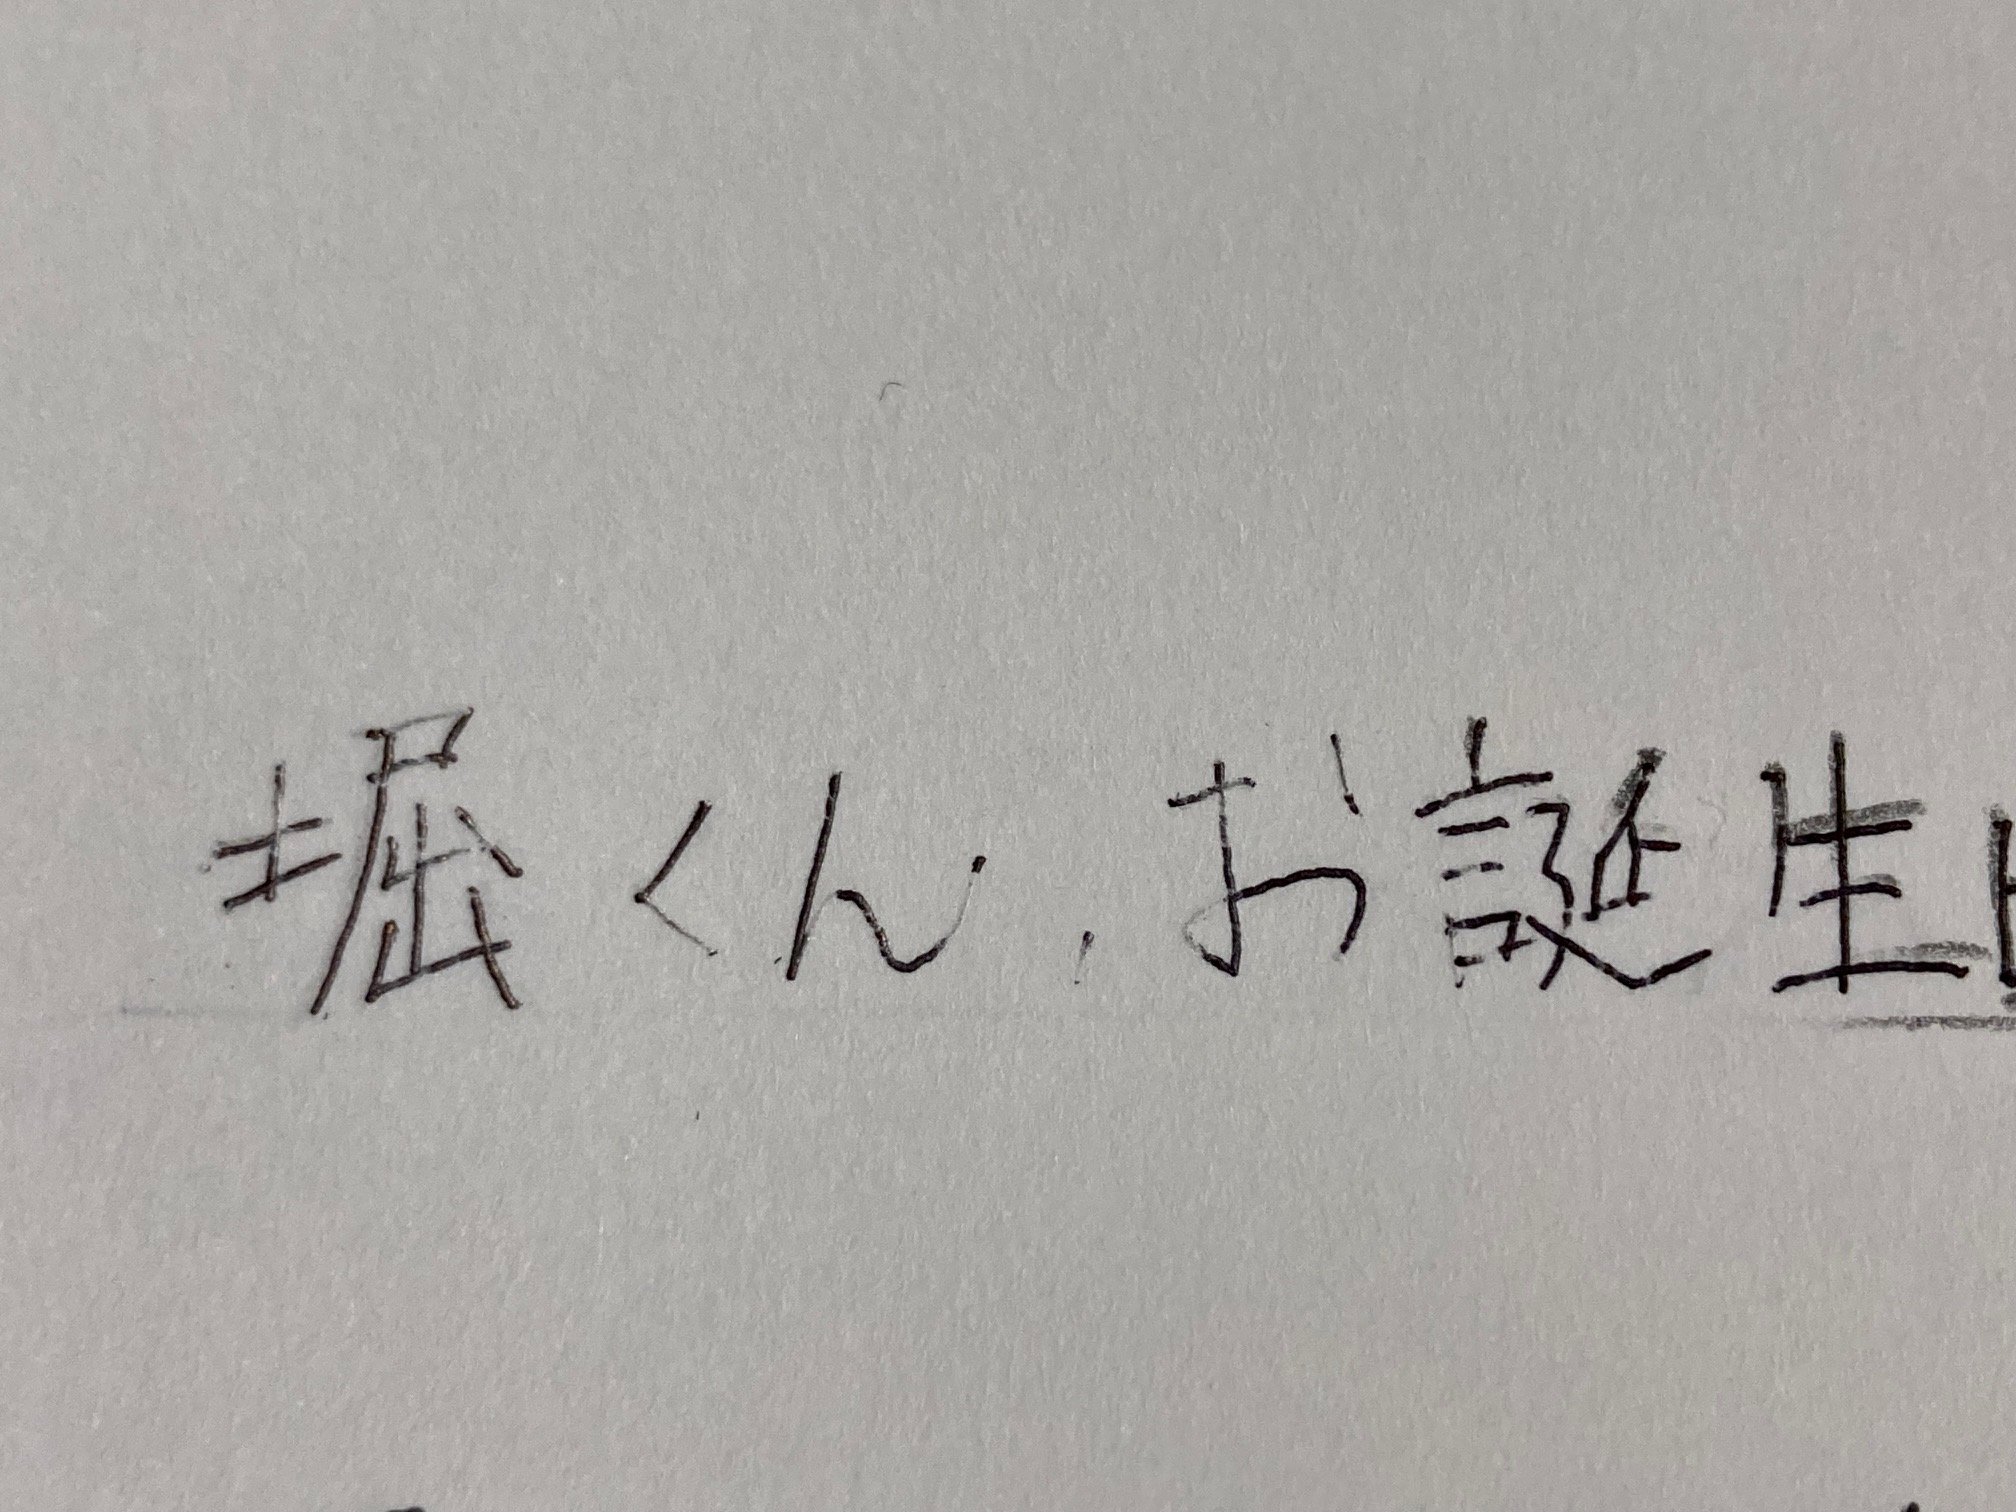 堀くん、お誕生